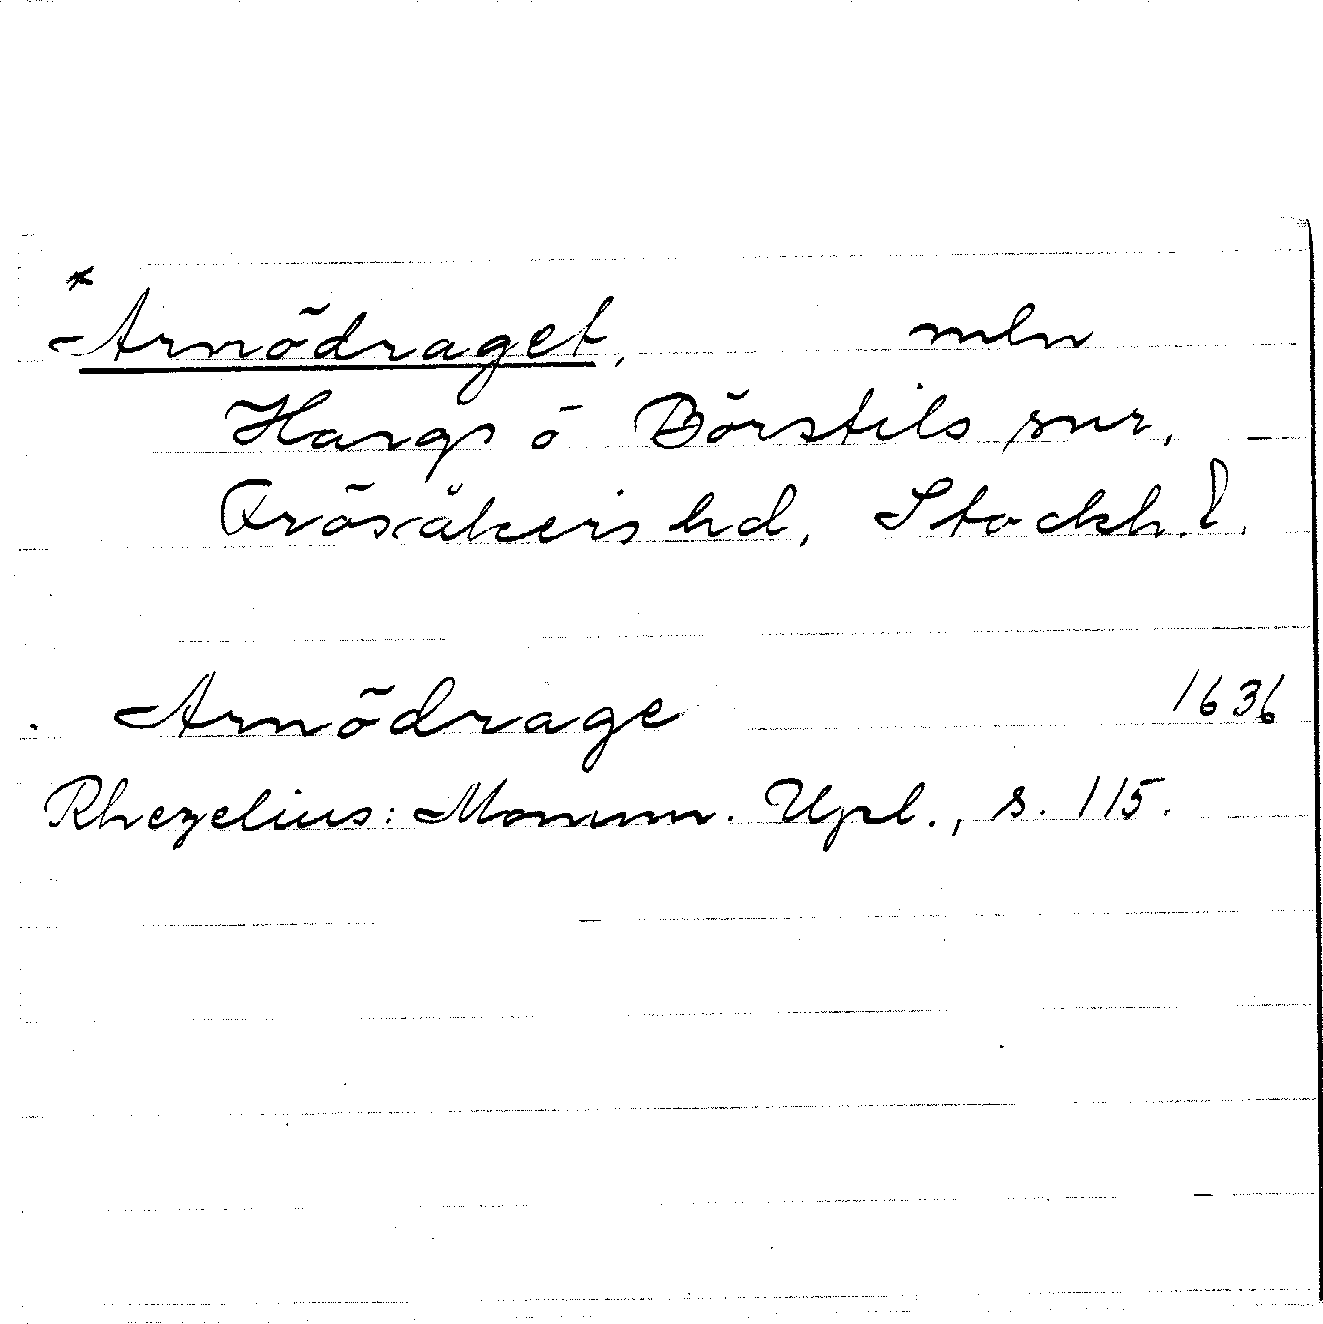 * Arnödraget, mln
Hargs o Börstils snr,
Frösåkers hd, Stockh. l.
Arnödrage 1636
Rhezelius: Monum. Upl., s. 115.